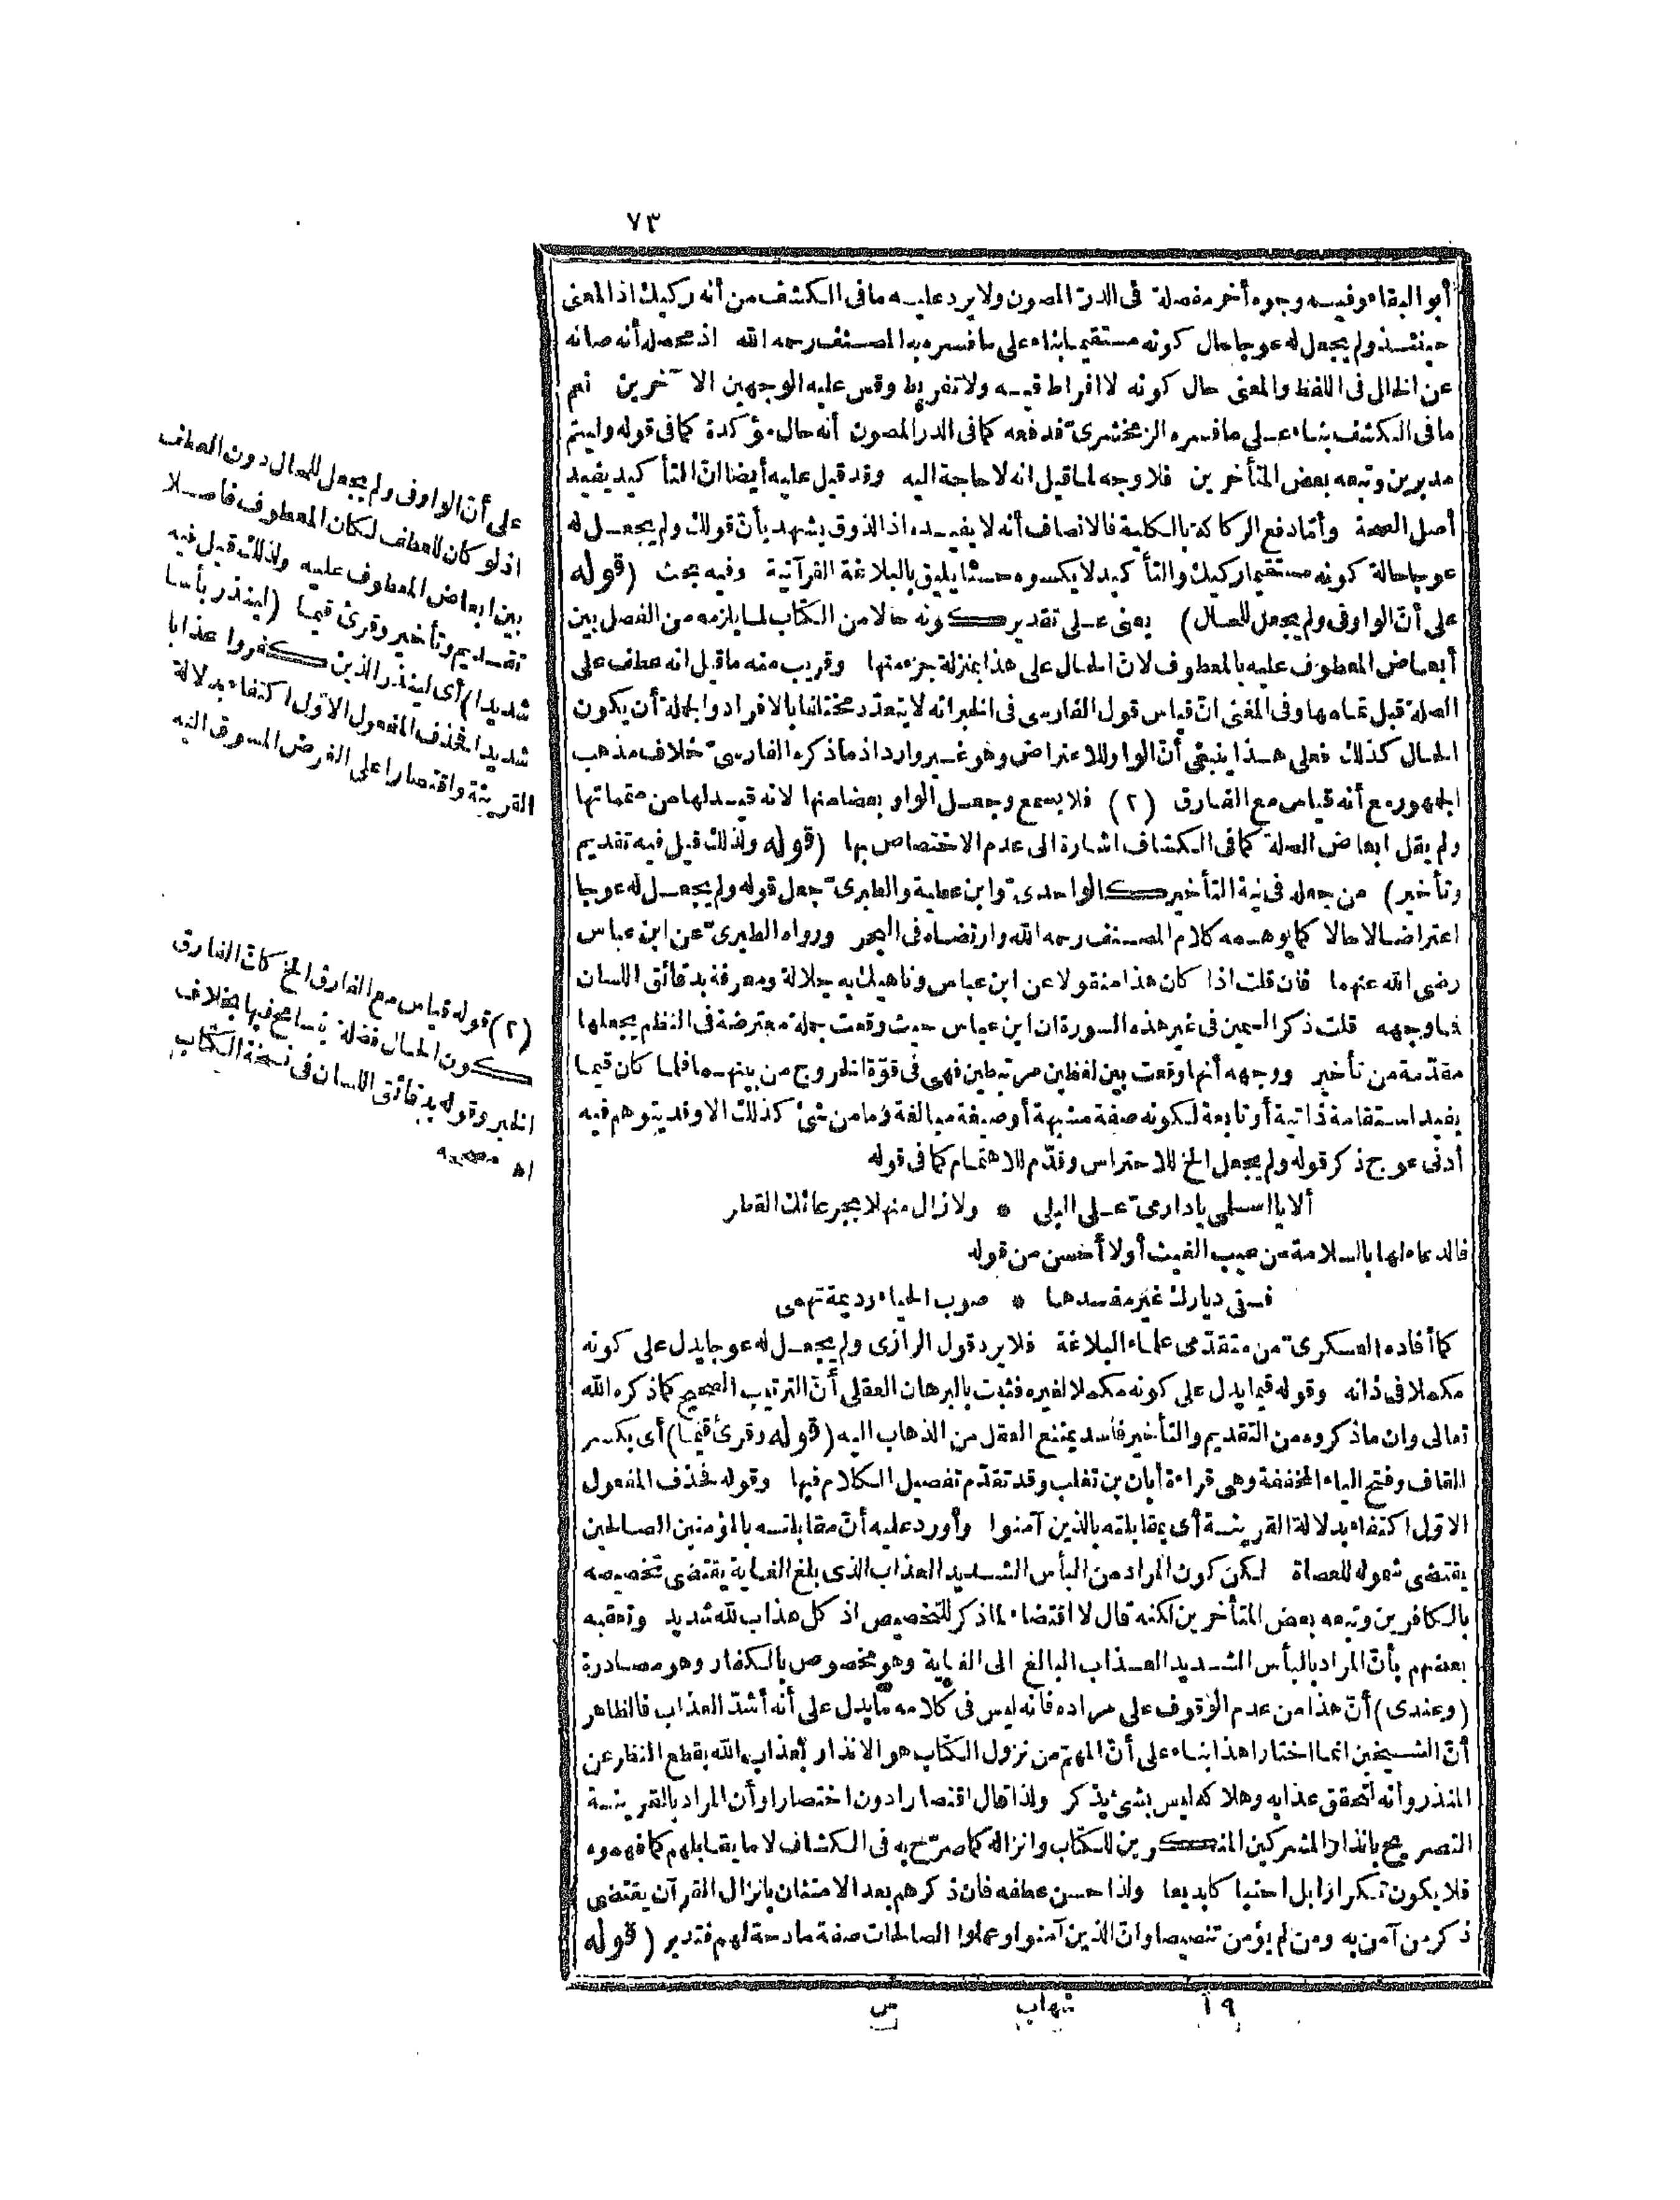 ٧٣
أبو البقاء وفيه وجوه أخر مفصلة فى الدرّ المصون ولا يرد عليه ما فى الكشف من أنه ركيك اذ المعنى
حينئذ ولم يجعل له عوجا حال كونه مستقيما بناء على ما فسره به المصنف رحمه الله اذ محصله أنه صانه
عن الخلل فى اللفظ والمعنى حال كونه لا افراط فيه ولا تفريط وقس عليه الوجهين الآخرين نعم
ما فى الكشف بناء على ما فسره الزمخشرىّ فدفعه كما فى الدر المصون أنه حال مؤكدة كما فى قوله وليتم
مدبرين وتبعه بعض المتأخرين فلا وجه لما قيل انه لا حاجة اليه وقد قيل عليه أيضا انّ التأكيد يفيد
أصل الصحة وأمّا دفع الركاكة بالكلية فالانصاف أنه لا يفيده اذ الذوق يشهد بأنّ قولك ولم يجعل له
عوجا حالة كونه مستقيما ركيك والتأكيد لا يكسوه حسنا يليق بالبلاغة القرآنية وفيه بحث (قوله
على أنّ الواو فى ولم يجعل للحال) يعنى على تقدير كونه حالا من الكتاب لما يلزمه من الفصل بين
أبعاض المعطوف عليه بالمعطوف لان الحال على هذا بمنزلة جزء منها وقريب منه ما قيل انه عطف على
الصلة قبل تمامها وفى المغنى انّ قياس قول الفارسى فى الخبر انه لا يتعدّد مختلفا بالافراد والجملة أن يكون
الحال كذلك فعلى هذا ينبغى أنّ الواو للاعتراض وهو غير وارد اذ ما ذكره الفارسىّ خلاف مذهب
الجمهور مع أنه قياس مع الفارق (٢) فلا يسمع وجعل الواو بعضا منها لانه قيد لها من متمماتها
ولم يقل ابعاض الصلة كما فى الكشاف اشارة الى عدم الاختصاص بها (قوله ولذلك قيل فيه تقديم
وتأخير) من جعله فى نية التأخير كالواحدىّ وابن عطية والطبرىّ جعل قوله ولم يجعل له عوجا
اعتراضا لا حالا كما يوهمه كلام المصنف رحمه الله وارتضاه فى البحر ورواه الطبرىّ عن ابن عباس
رضى الله عنهما فان قلت اذا كان هذا منقولا عن ابن عباس وناهيك به جلالة ومعرفة بدقائق اللسان
فما وجهه قلت ذكر السمين فى غير هذه السورة ان ابن عباس حيث وقعت جملة معترضة فى النظم يجعلها
مقدّمة من تأخير ووجهه أنها وقعت بين لفظين مرتبطين فهى فى قوّة الخروج من بينهما فلما كان قيما
يفيد استقامة ذاتية أو تابعة لكونه صفة مشبهة أو صيغة مبالغة وما من شئ كذلك الا وقد يتوهم فيه
أدنى عوج ذكر قوله ولم يجعل الخ للاحتراس وقدّم للاهتمام كما فى قوله
ألا يا اسلمى يا دار مىّ على البلى * ولا زال منهلا بجرعائك القطر
فالدعاء لها بالسلامة من عيب الغيث أولا أحسن من قوله
فسقى ديارك غير مفسدها * صوب الحياء وديمة تهمى
كما أفاده العسكرىّ من متقدّمى علماء البلاغة فلا يرد قول الرازى ولم يجعل له عوجا يدل على كونه
مكملا فى ذاته وقوله قيما يدل على كونه مكملا لغيره فثبت بالبرهان العقلى أنّ الترتيب الصحيح كما ذكره الله
تعالى وان ما ذكروه من التقديم والتأخير فاسد يمتنع العقل من الذهاب اليه (قوله وقرئ قيما) أى بكسر
القاف وفتح الياء المخففة وهى قراءة أبان بن تغلب وقد تقدّم تفصيل الكلام فيها وقوله فحذف المفعول
الاوّل اكتفاء بدلالة القرينة أى بمقابلته بالذين آمنوا وأورد عليه أنّ مقابلته بالمؤمنين الصالحين
يقتضى شموله للعصاة لكن كون المراد من البأس الشديد العذاب الذى بلغ الغاية يقتضى تخصيصه
بالكافرين وتبعه بعض المتأخرين لكنه قال لا اقتضاء لما ذكر للتخصيص اذ كل عذاب لله شديد وتعقبه
بعضهم بأنّ المراد بالبأس الشديد العذاب البالغ الى الغاية وهو مخصوص بالكفار وهو مصادرة
(وعندى) أنّ هذا من عدم الوقوف على مراده فانه ليس فى كلامه ما يدل على أنه أشدّ العذاب فالظاهر
أنّ الشيخين انما اختارا هذا بناء على أنّ المهمّ من نزول الكتاب هو الانذار بعذاب الله بقطع النظر عن
المنذر وأنه لتحقق عذابه وهلاكه ليس بشئ يذكر ولذا قال اقتصارا دون اختصارا وأن المراد بالقرينة
التصريح بانذار المشركين المنكرين للكتاب وانزاله كما صرّح به فى الكشاف لا ما يقابلهم كما فهموه
فلا يكون تكرارا بل احتباكا بديعا ولذا حسن عطفه فان ذكرهم بعد الامتنان بانزال القرآن يقتضى
ذكر من آمن به ومن لم يؤمن تنصيصا وانّ الذين آمنوا وعملوا الصالحات صفة مادحة لهم فتدبر (قوله
على أنّ الواو فى ولم يجعل للحال دون العطف
اذ لو كان للعطف لكان المعطوف فاصلا
بين ابعاض المعطوف عليه ولذلك قيل فيه
تقديم وتأخير وقرئ قيما (لينذر بأسا
شديدا) أى لينذر الذين كفروا عذابا
شديدا فحذف المفعول الاوّل اكتفاء بدلالة
القرينة واقتصارا على الغرض المسوق اليه
(٢) قوله قياس مع الفارق الخ كان الفارق
كون الحال فضلة يتسامح فيها بخلاف
الخبر وقوله بدقائق اللسان فى نسخة الكتاب
اه مصححه
١٩ شهاب س